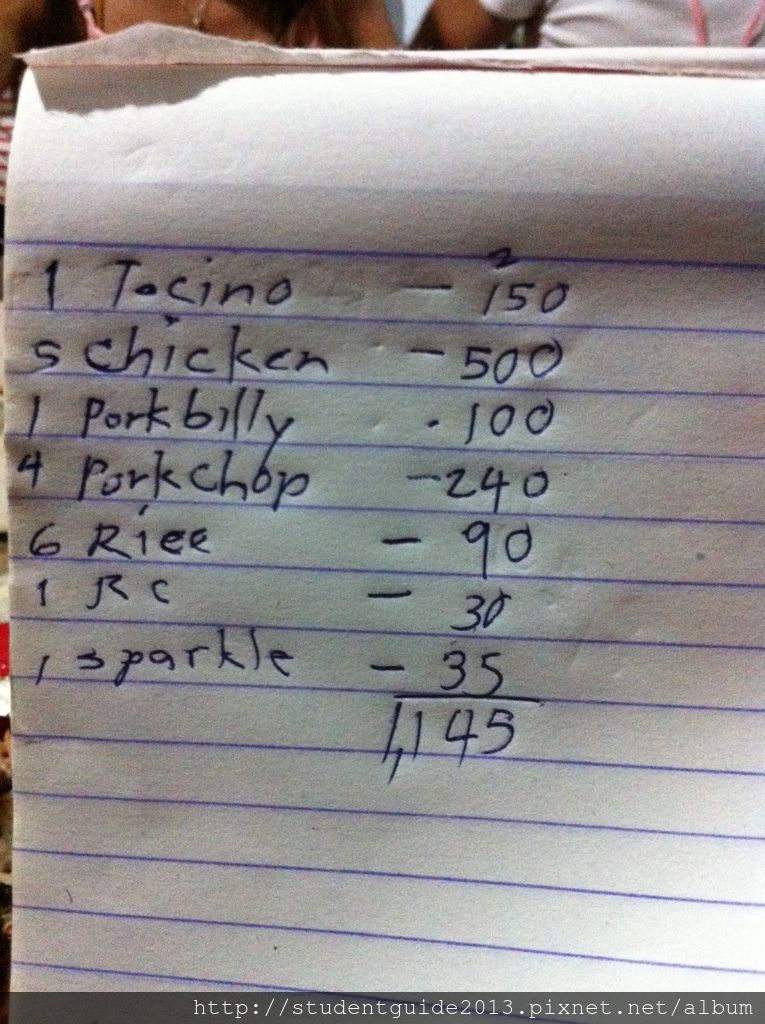 2
1 Tocino - 150
5 chicken - 500
1 Porkbilly - 100
4 Porkchop - 240
6 Rice - 90
1 RC - 30
1 sparkle - 35
1,145
http://studentguide2013.pixnet.net/album